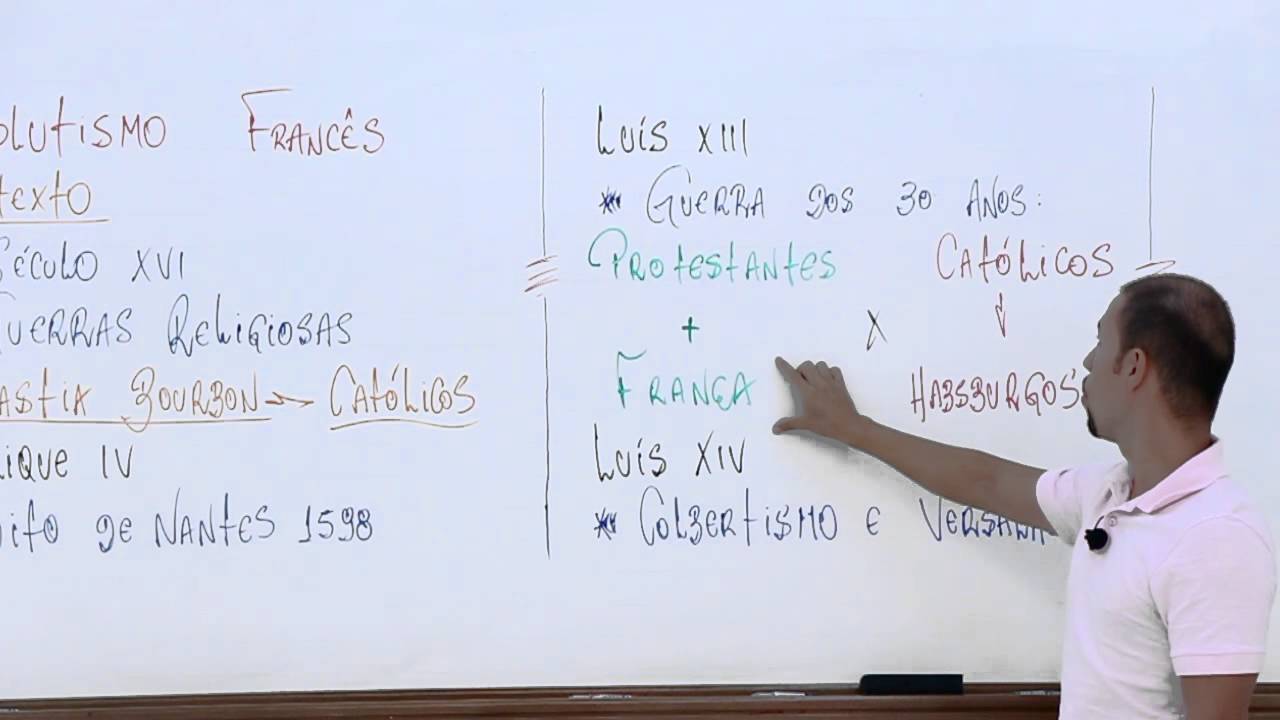 OLUTISMO FRANCÊS
TEXTO
SÉCULO XVI
GUERRAS RELIGIOSAS
ASTIA BOURBON → CATÓLICOS
IQUE IV
ITO DE NANTES 1598
LUÍS XIII
* GUERRA DOS 30 ANOS:
PROTESTANTES CATÓLICOS
+ X ↓
FRANÇA HABSBURGOS
LUÍS XIV
* COLBERTISMO E VERSA